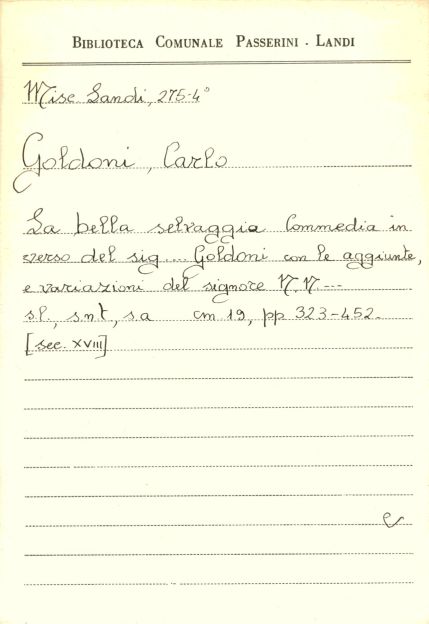 BIBLIOTECA COMUNALE PASSERINI - LANDI
Misc Landi, 275-4°
Goldoni, Carlo
La bella selvaggia Commedia in
verso del sig.... Goldoni con le aggiunte,
e variazioni del signore N.N. ---
s.l., s.n.t., s.a cm 19, pp 323-452.
[sec. XVIII]
e